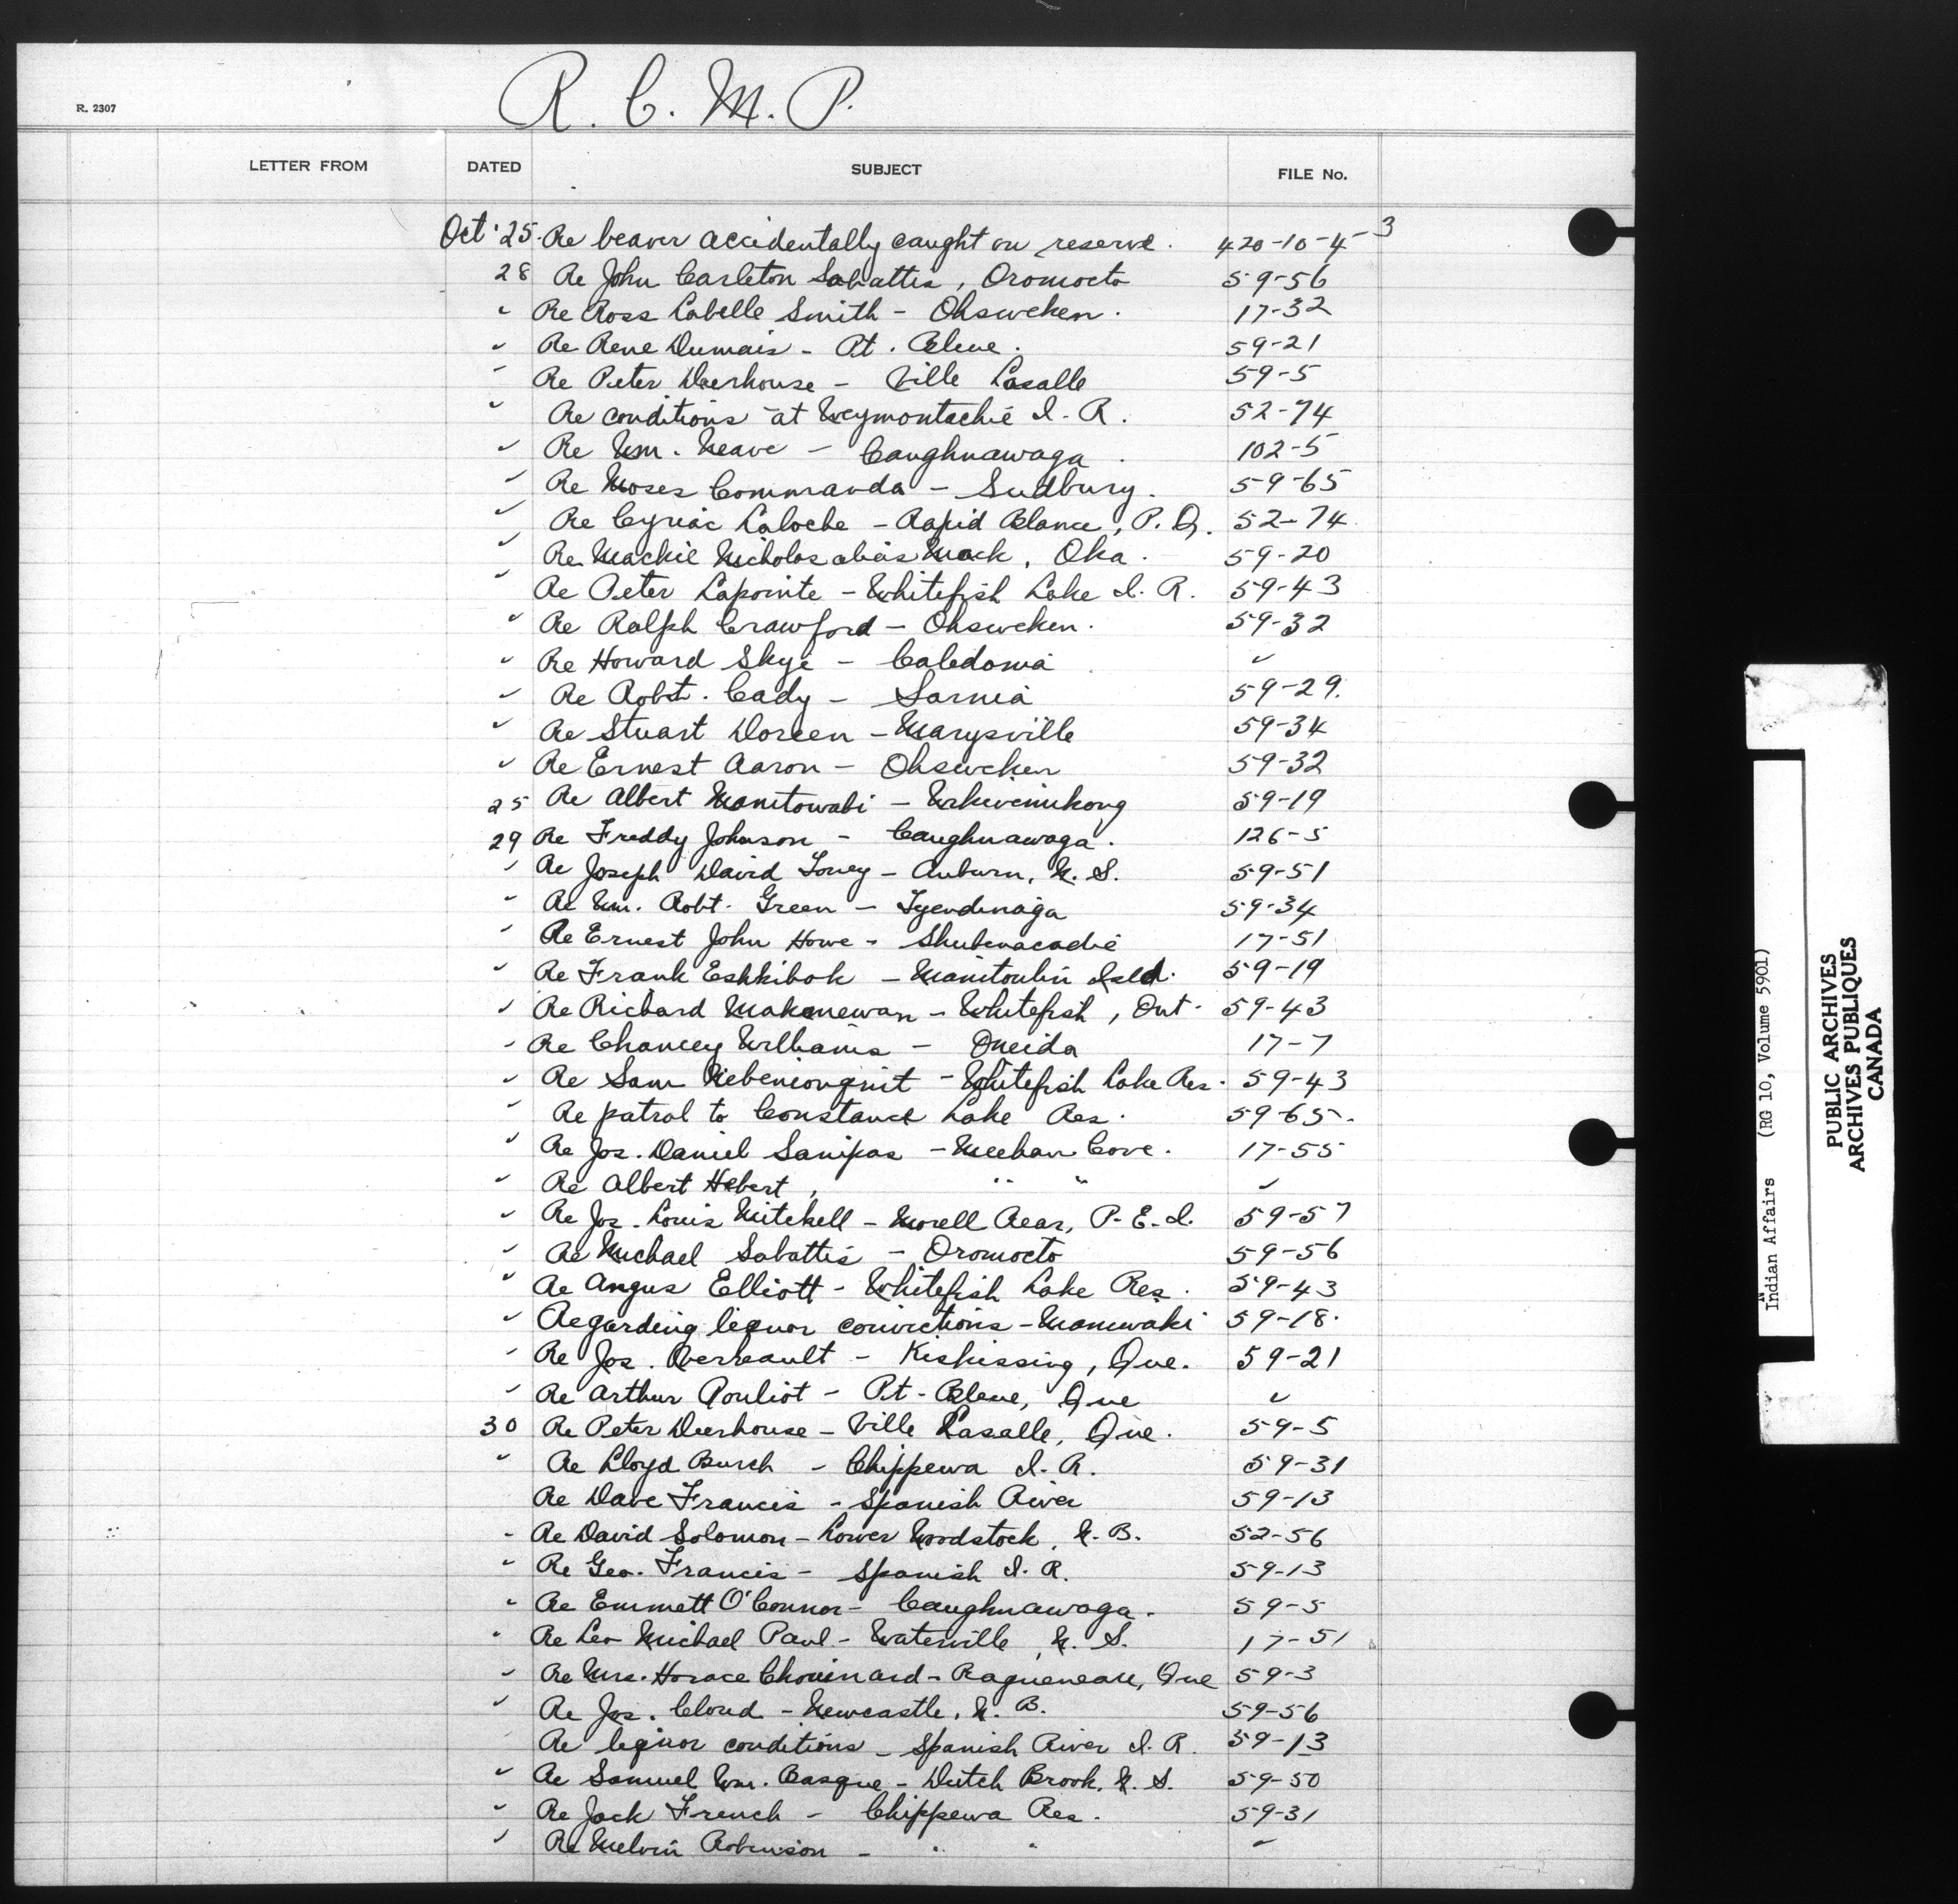 R. C. M. P.
R. 2307
LETTER FROM DATED SUBJECT FILE No.
Oct. 25. Re beaver accidentally caught on reserve. 420-10-4-3
28 Re John Carleton Sabattis, Oromocto 59-56
" Re Ross Labelle Smith - Ohsweken. 17-32
" Re Rene Dumais - Pt. Bleue. 59-21
" Re Peter Deerhouse - Ville Lasalle 59-5
" Re conditions at Weymontachie I. R. 52-74
" Re Wm. Neave - Caughnawaga. 102-5
" Re Moses Commanda - Sudbury. 59-65
" Re Cyriac Laloche - Rapid Blanc, P. Q. 52-74
" Re Mackie Nicholas alias Mack, Oka. 59-20
" Re Peter Lapointe - Whitefish Lake I. R. 59-43
" Re Ralph Crawford - Ohsweken. 59-32
" Re Howard Skye - Caledonia "
" Re Robt. Cady - Sarnia 59-29.
" Re Stuart Doreen - Marysville 59-34
" Re Ernest Aaron - Ohsweken 59-32
25 Re Albert Manitowabi - Wikwemikong 59-19
29 Re Freddy Johnson - Caughnawaga. 126-5
" Re Joseph David Toney - Auburn, N. S. 59-51
" Re Wm. Robt. Green - Tyendinaga 59-34
" Re Ernest John Howe - Shubenacadie 17-51
" Re Frank Eshkibok - Manitoulin Isld. 59-19
" Re Richard Makenewan - Whitefish, Ont. 59-43
" Re Chancey Williams - Oneida 17-7
" Re Sam Nebenionquit - Whitefish Lake Res. 59-43
" Re patrol to Constance Lake Res. 59-65.
" Re Jos. Daniel Sanipas - Meehan Cove. 17-55
" Re Albert Hebert, " " "
" Re Jos. Louis Mitchell - Morell Rear, P. E. I. 59-57
" Re Michael Sabattis - Oromocto 59-56
" Re Angus Elliott - Whitefish Lake Res. 59-43
" Regarding liquor convictions - Maniwaki 59-18.
" Re Jos. - Kiskissing, Que. 59-21
" Re Arthur Pouliot - Pt. Bleue, Que "
30 Re Peter Deerhouse - Ville Lasalle, Que. 59-5
" Re Lloyd Burch - Chippewa I. R. 59-31
Re Dave Francis - Spanish River 59-13
" Re David Solomon - Lower Woodstock, N. B. 52-56
" Re Geo. Francis - Spanish I. R. 59-13
" Re Emmett O'Connor - Caughnawaga. 59-5
" Re Leo Michael Paul - Waterville, N. S. 17-51
" Re Mrs. Horace Chouinard - Ragueneau, Que 59-3
" Re Jos. Cloud - Newcastle, N. B. 59-56
Re liquor conditions - Spanish River I. R. 59-13
" Re Samuel Wm. Basque - Dutch Brook, N. S. 59-50
" Re Jack French - Chippewa Res. 59-31
" Re Melvin Robinson - " " "
Indian Affairs (RG 10, Volume 5901)
PUBLIC ARCHIVES
ARCHIVES PUBLIQUES
CANADA